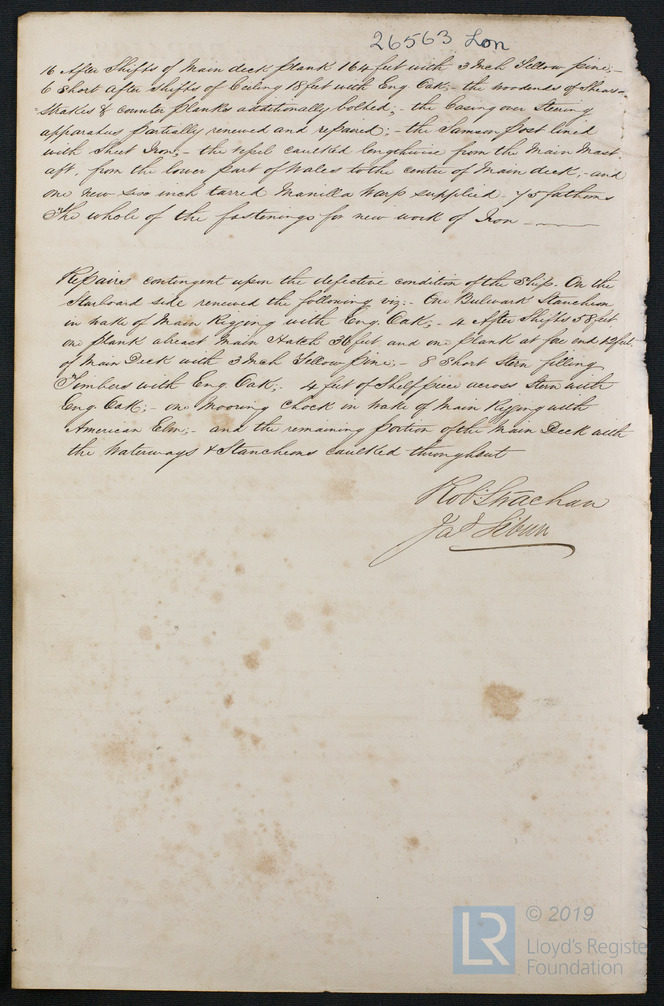 26563 Lon
16 After Shifts of Main deck plank 164 feet with 3 Inch Yellow pine;-
6 Short After Shifts of Ceiling 18 feet with Eng Oak;- the woodends of Shear
Strakes & counter planks additionally bolted;- the Casing over Steering
apparatus partially renewed and repaired;- the Samson post lined
with Sheet Iron;- the vessel caulked lengthwise from the Main Mast
aft, from the lower part of Wales to the center of Main deck,- and
one new six inch tarred Manilla Warp supplied - 75 fathoms
The whole of the fastenings for new work of Iron -
Repairs contingent upon the defective condition of the Ship. On the
Starboard side renewed the following viz:- One Bulwark Stancheon
in wake of Main Rigging with Eng. Oak;- 4 After Shifts 58 feet
one plank abreast Main Hatch 36 feet and one plank at fore end 12 feet,
of Main Deck with 3 Inch Yellow pine;- 8 Short Stern filling
Timbers with Eng. Oak;- 4 feet of Shelfpiece across Stern with
Eng. Oak;- one Mooring Chock in wake of Main Rigging with
American Elm;- and the remaining portion of the Main Deck with
the Waterways & Stancheons caulked throughout
Robt Strachan
Jas
LR
© 2019
Lloyd's Registe
Foundation